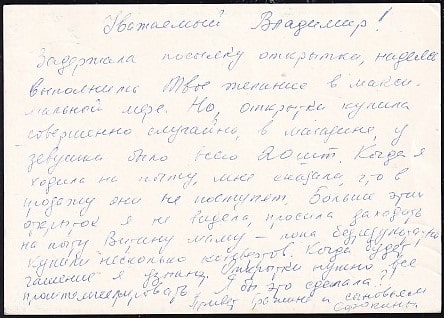 Уважаемый Владимир!
Задержала посылку открытки, надеясь
выполнила Твое желание в макси-
мальной мере. Но, открытки купила
совершенно случайно, в магазине, у
девушки было всего 20 шт. Когда я
ходила на почту, мне сказали, что в
продажу они не поступят. Больше этих
открыток я не видела, просила заходить
на почту Витину маму – пока безрезультатно
Купили несколько конвертов. Когда будет
гашение я узнаю. Открытки нужно все
проштемпелевать Я бы это сделала.
Привет родным и сыновьям